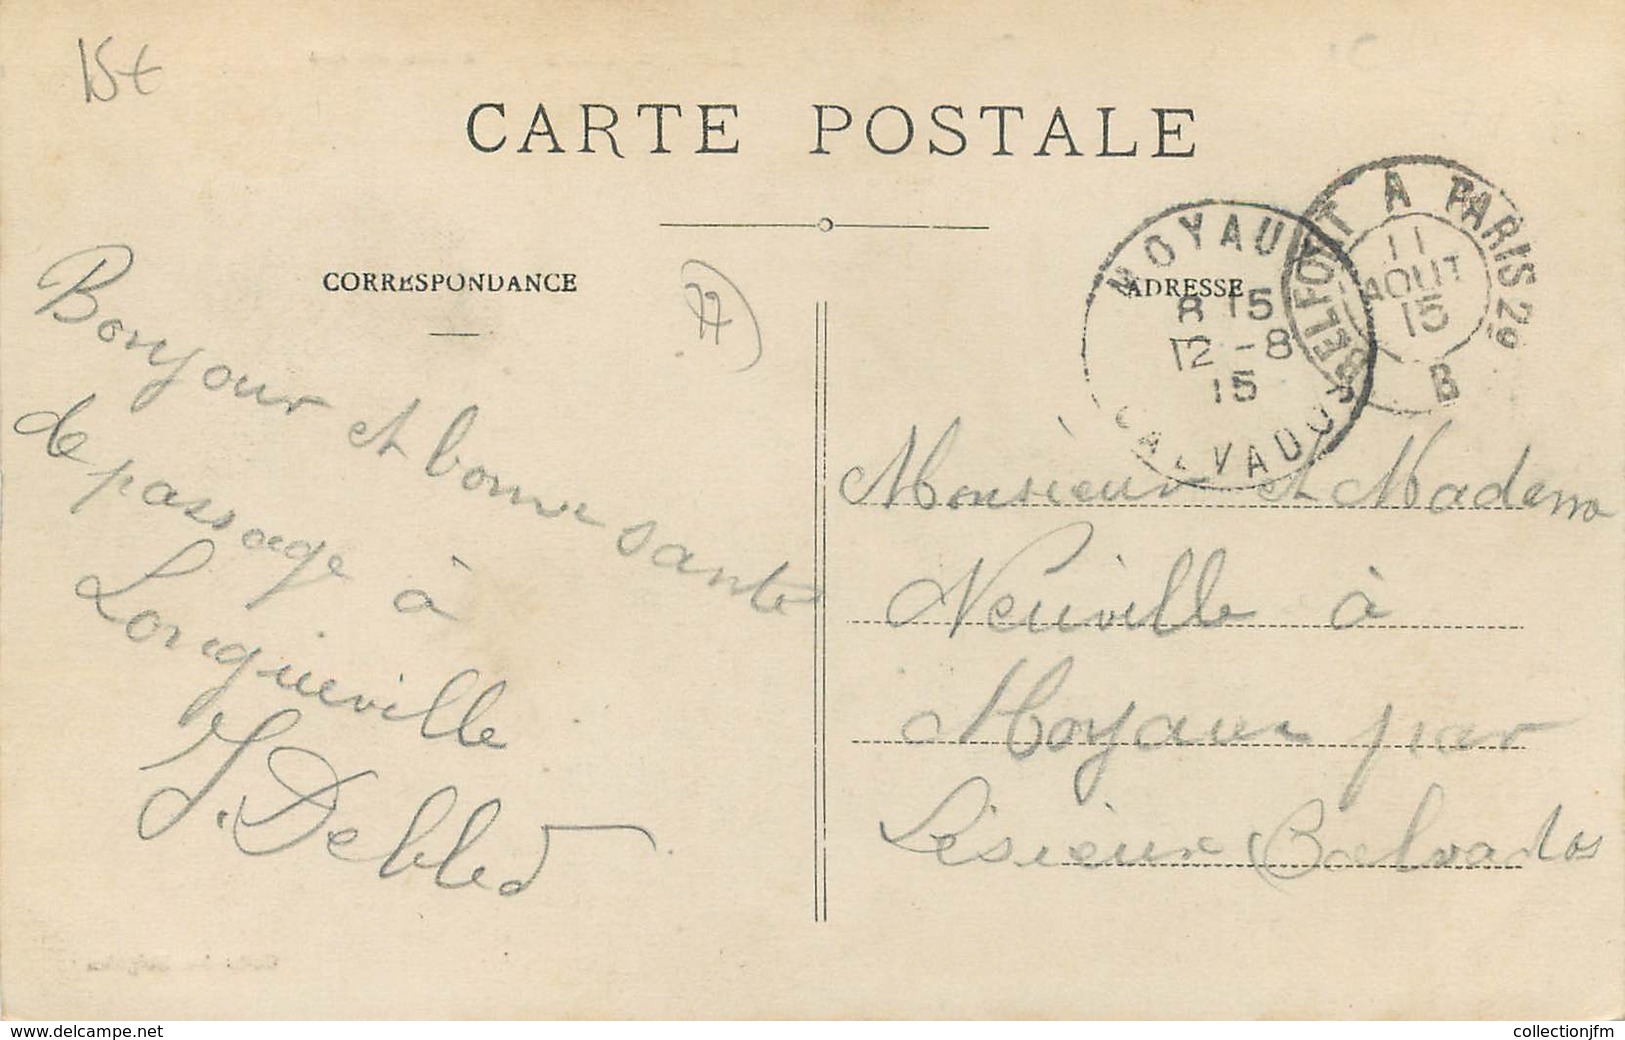 15€
CARTE POSTALE
CORRESPONDANCE
77
ADRESSE
MOYAUX
8 15
12 - 8
15
CALVADOS
BELFORT A PARIS 2o
11
AOUT
15
B
Bonjour et bonne santé
de passage à
Longueville
J. Debled
Monsieur et Madame
Neuville à
Moyaux par
Lésieux Calvados
www.delcampe.net
collectionjfm